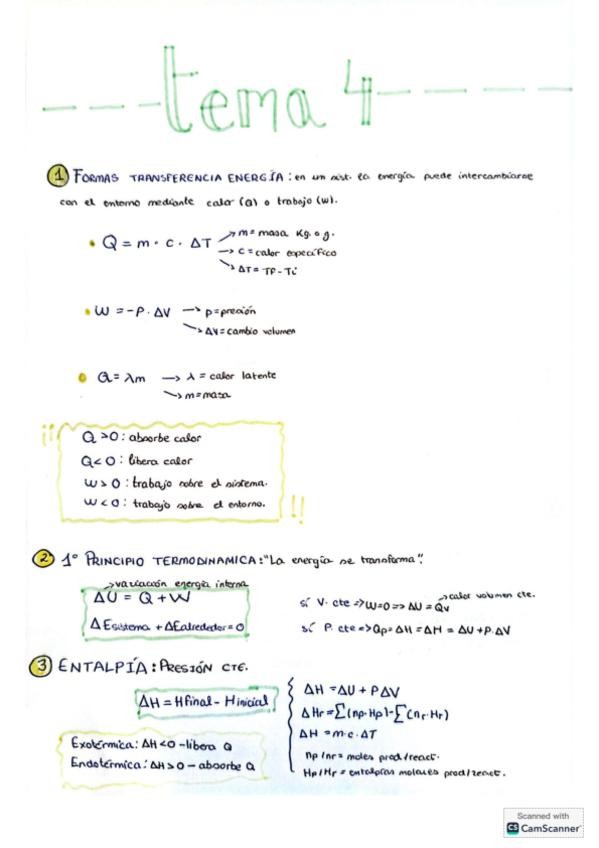 tema 4
① FORMAS TRANSFERENCIA ENERGÍA: en un sist. la energía puede intercambiarse
con el entorno mediante calor (Q) o trabajo (w).
• Q = m · c · ΔT → m = masa Kg. o g.
→ c = calor específico
→ ΔT = TF - Ti
• W = -P · ΔV → p = presión
→ ΔV = cambio volumen
• Q = λm → λ = calor latente
→ m = masa
¡¡ Q > 0 : absorbe calor
Q < 0 : libera calor
W > 0 : trabajo sobre el sistema.
W < 0 : trabajo sobre el entorno. !!
② 1º PRINCIPIO TERMODINAMICA: "La energía se transforma".
→ variación energía interna
ΔU = Q + W
ΔEsistema + ΔEalrededor = 0
sí V. cte => W=0 => ΔU = Qv → calor volumen cte.
sí P. cte => Qp = ΔH = ΔH = ΔU + P.ΔV
③ ENTALPÍA: PRESIÓN CTE.
ΔH = Hfinal - Hinicial
Exotérmica: ΔH < 0 - libera Q
Endotérmica: ΔH > 0 - absorbe Q
ΔH = ΔU + PΔV
ΔHr = Σ(np · Hp) - Σ(nr · Hr)
ΔH = m · c · ΔT
np / nr = moles prod / react.
Hp / Hr = entalpías molares prod / react.
Scanned with
CS CamScanner